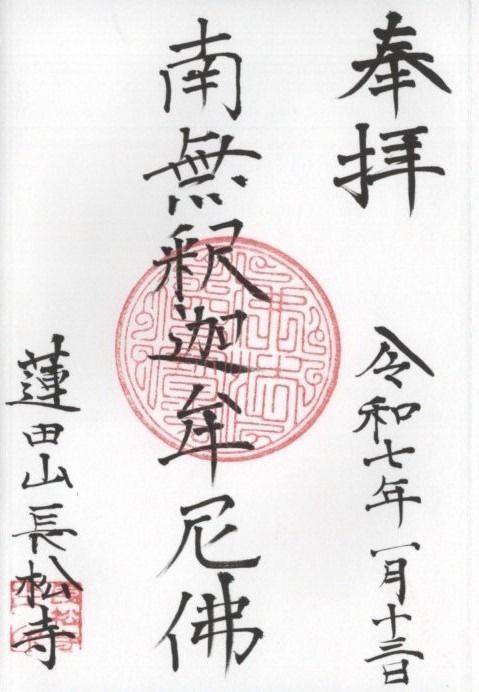 奉拝
令和七年一月十三日
南無釈迦牟尼佛
蓮田山長松寺